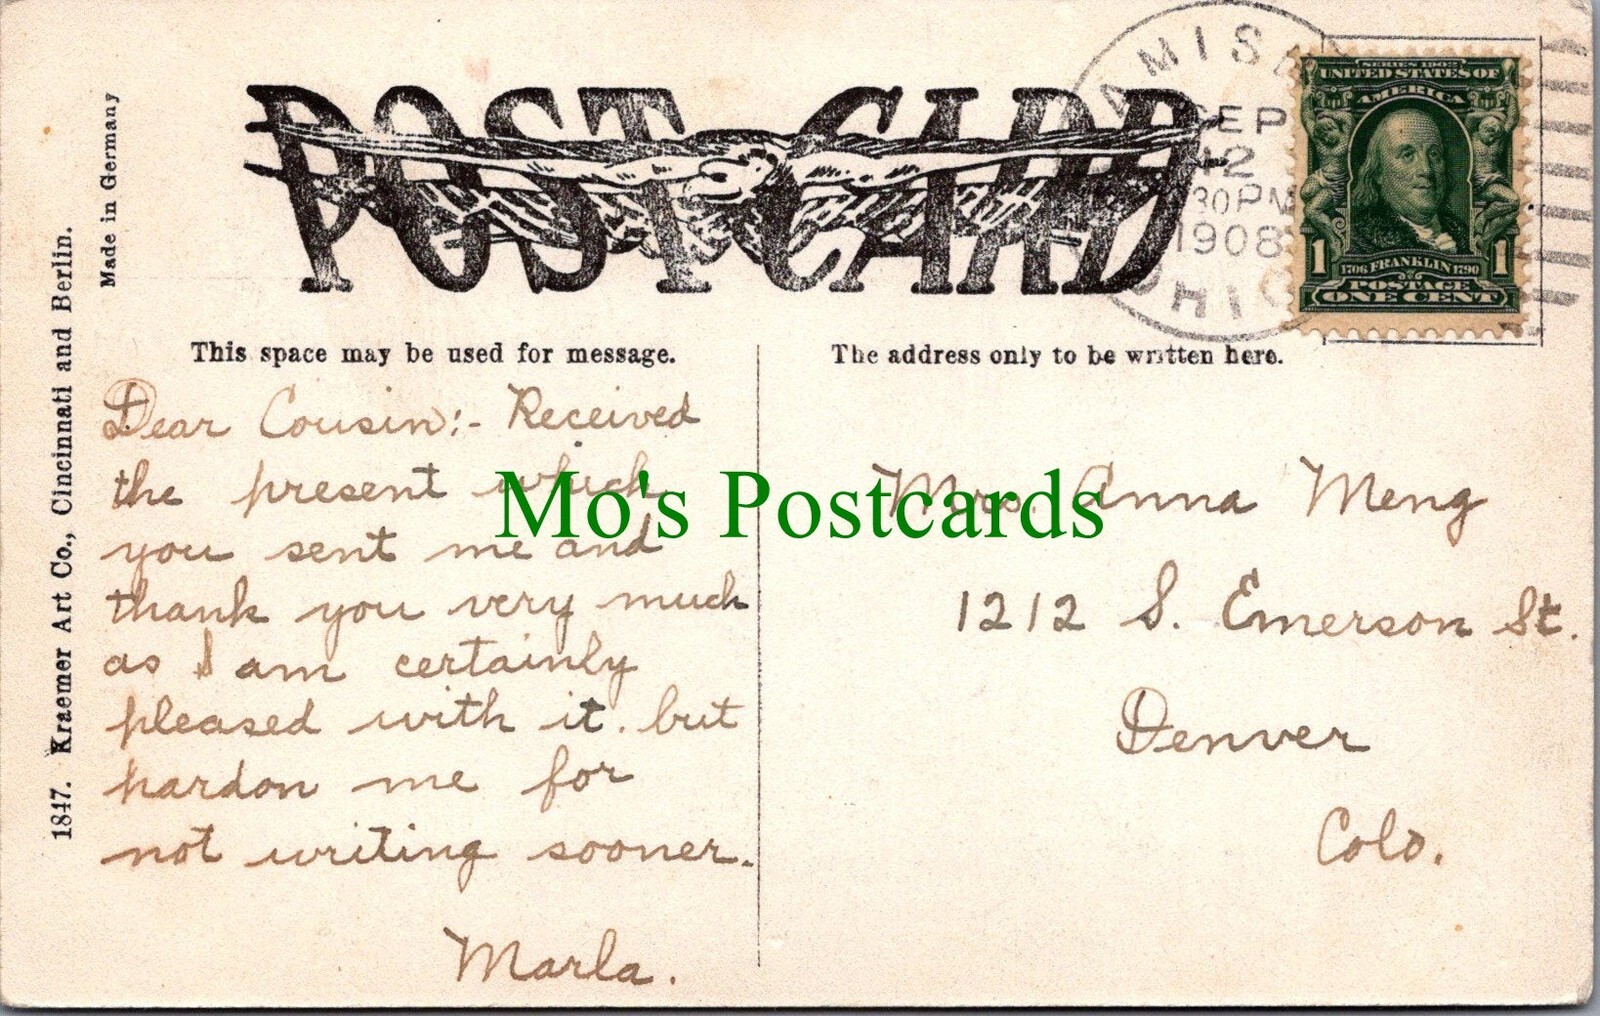 POST CARD
AMISB
SEP
12
30 PM
1908
OHIO
SERIES 1902
UNITED STATES OF
AMERICA
1706 FRANKLIN 1790
1 1
POSTAGE
ONE CENT
Made in Germany
1847. Kraemer Art Co., Cincinnati and Berlin.
This space may be used for message.
Dear Cousin:- Received
the present which
you sent me and
thank you very much
as I am certainly
pleased with it. but
pardon me for
not writing sooner.
Marla.
The address only to be written here.
Mrs. Anna Meng
1212 S. Emerson St.
Denver
Colo.
Mo's Postcards